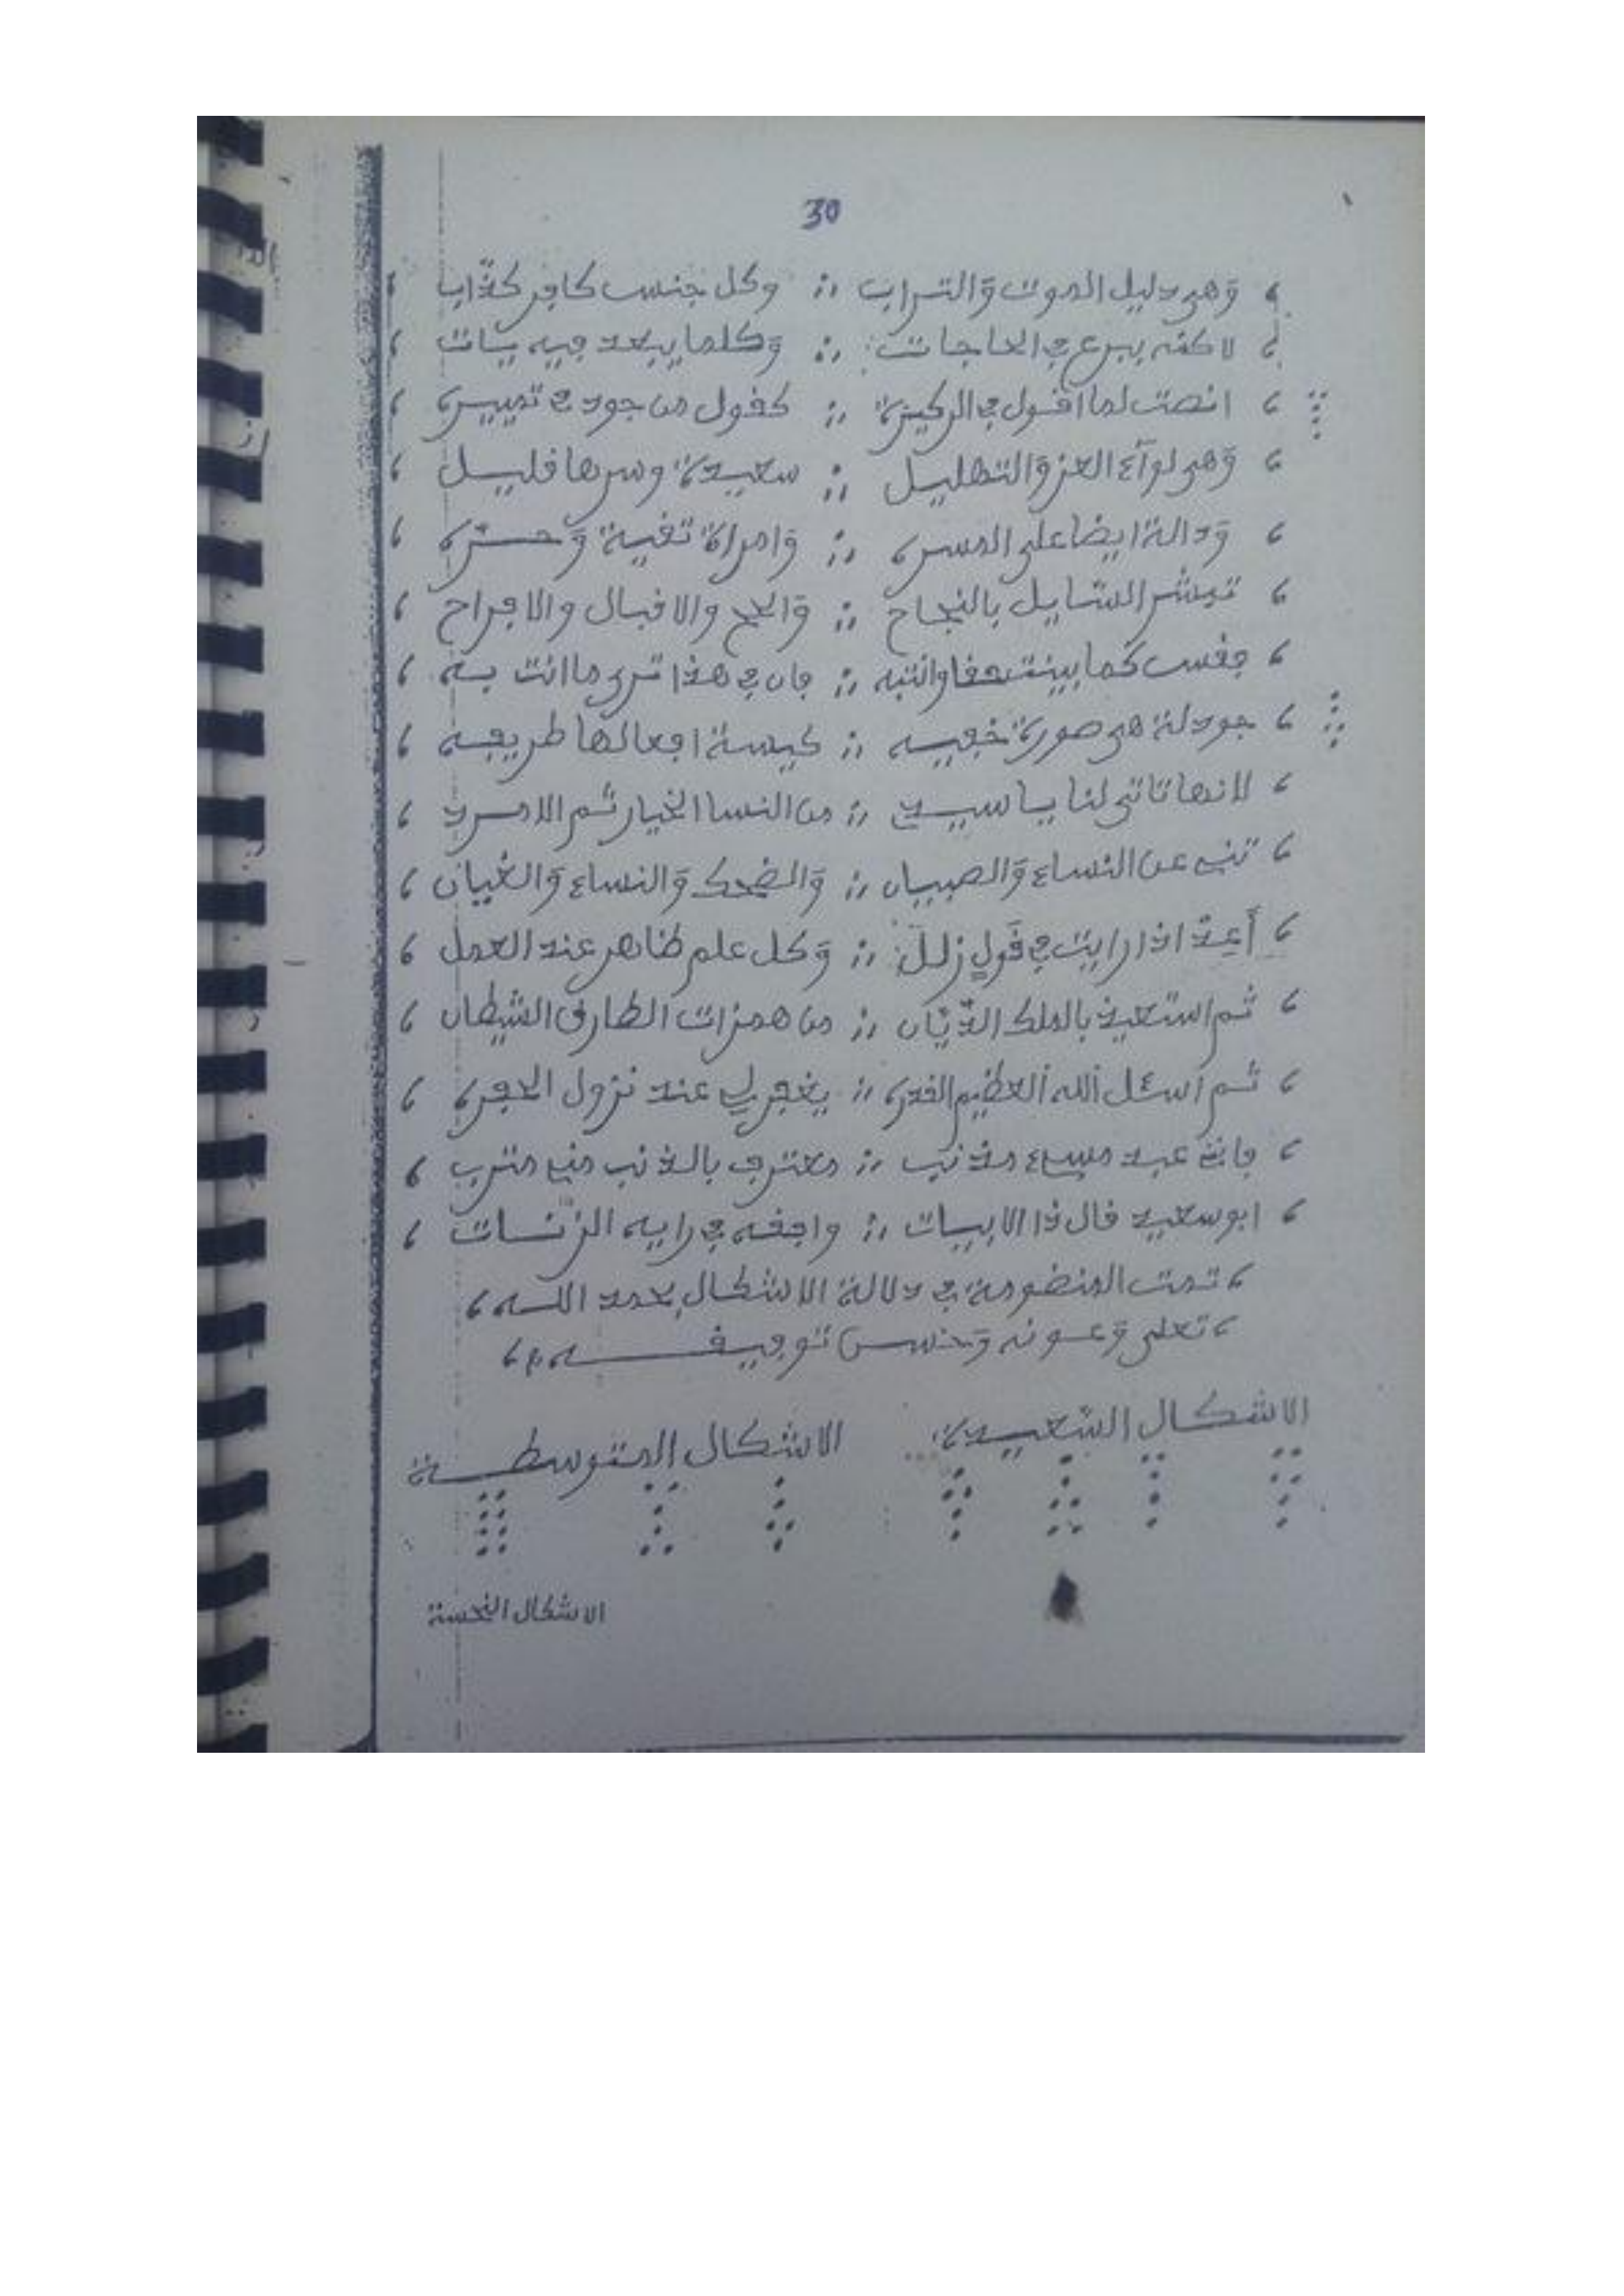 30
وهي دليل الموت والتراب ؞ وكل جنس كافر كذاب
لاكنه يسرع في الحاجات ؞ وكلما يبعد فيه يات
انصت لما اقول في الركيزة ؞ كقول من جود في تمييزه
وهي لوآء العز والتهليل ؞ سعيدة وسرها قليل
ودالة ايضا على المسره ؞ وامراة تقية وحره
تبشر السّايل بالنجاح ؞ والحج والاقبال والافراح
فقس كما بينت حقا وانتبه ؞ فان في هذا ترى ما انت به
جودلة هي صورة خفيه ؞ كيسة افعالها طريفه
لانها تاتي لنا يا سيدي ؞ من النسا الخيار ثم الامرد
تنبي عن النساء والصبيان ؞ والضحك والنساء والغيان
أعد اذا رايت في قولٍ زلل ؞ وكل علم ظاهر عند العمل
ثم استعيذ بالملك الدّيّان ؞ من همزات الطارق الشيطان
ثم اسئل الله العظيم القدره ؞ يغفر لي عند نزول الحفره
فانني عبد مسيء مذنب ؞ معترف بالذنب مني مترب
ابو سعيد قال ذا الابيات ؞ وافقه في رايه الزّنات
تمت المنظومة في دلالة الاشكال بحمد الله
تعلى وعونه وحسن توفيقه
الاشكال السّعيدة الاشكال المتوسطية
الاشكال النحسة